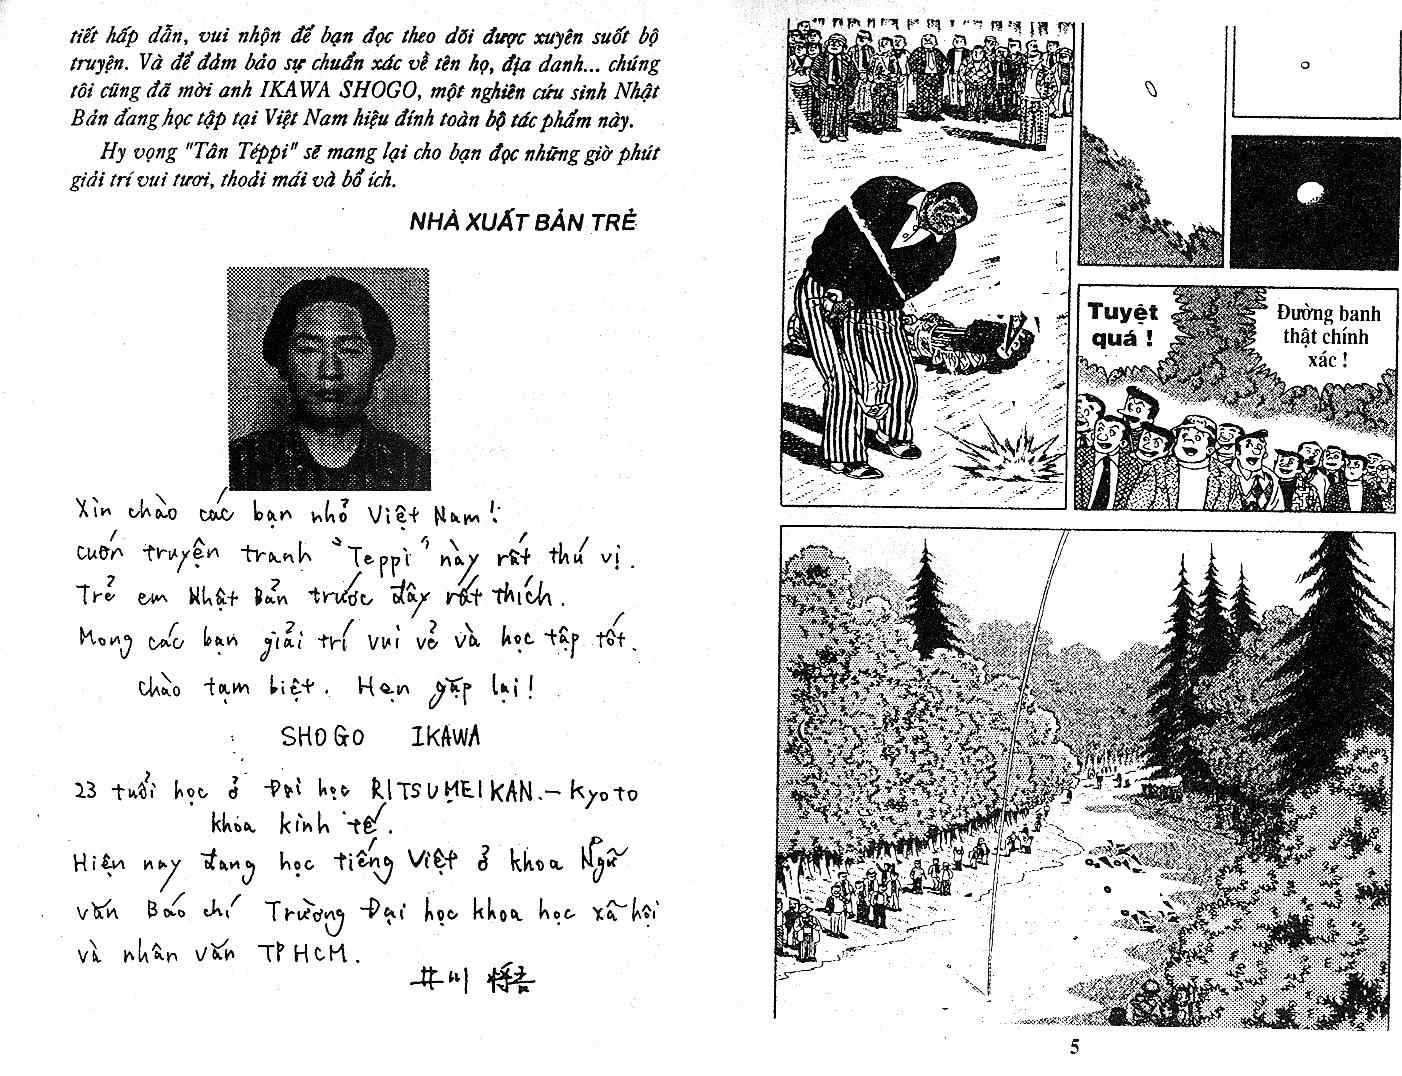 tiết hấp dẫn, vui nhộn để bạn đọc theo dõi được xuyên suốt bộ
truyện. Và để đảm bảo sự chuẩn xác về tên họ, địa danh... chúng
tôi cũng đã mời anh IKAWA SHOGO, một nghiên cứu sinh Nhật
Bản đang học tập tại Việt Nam hiệu đính toàn bộ tác phẩm này.
Hy vọng "Tân Téppi" sẽ mang lại cho bạn đọc những giờ phút
giải trí vui tươi, thoải mái và bổ ích.
NHÀ XUẤT BẢN TRẺ
Xin chào các bạn nhỏ Việt Nam!
cuốn truyện tranh "Teppi" này rất thú vị.
Trẻ em Nhật Bản trước đây rất thích.
Mong các bạn giải trí vui vẻ và học tập tốt.
chào tạm biệt. Hẹn gặp lại!
SHOGO IKAWA
23 tuổi học ở Đại học RITSUMEIKAN.- Kyoto
khoa kinh tế.
Hiện nay đang học tiếng Việt ở khoa Ngữ
văn Báo chí Trường Đại học khoa học xã hội
và nhân văn TP HCM.
井川 将吾
Tuyệt
quá !
Đường banh
thật chính
xác !
5